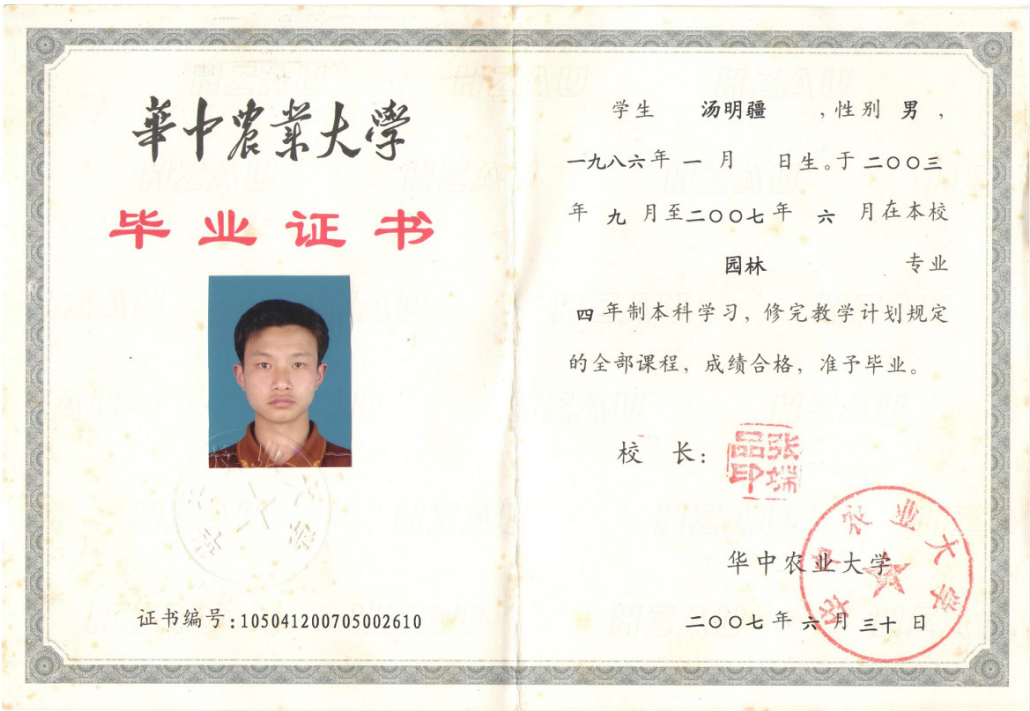 華中农業大學
毕业证书
证书编号:105041200705002610
学生 汤明疆 ,性别 男,
一九八六年 一 月 日生。于 二〇〇三
年 九 月至二〇〇七年 六 月在本校
园林 专业
四 年制本科学习, 修完教学计划规定
的全部课程, 成绩合格, 准予毕业。
校 长:
张端品印
华中农业大学
华中农业大学
二〇〇七年 六 月 三十 日
HZAU